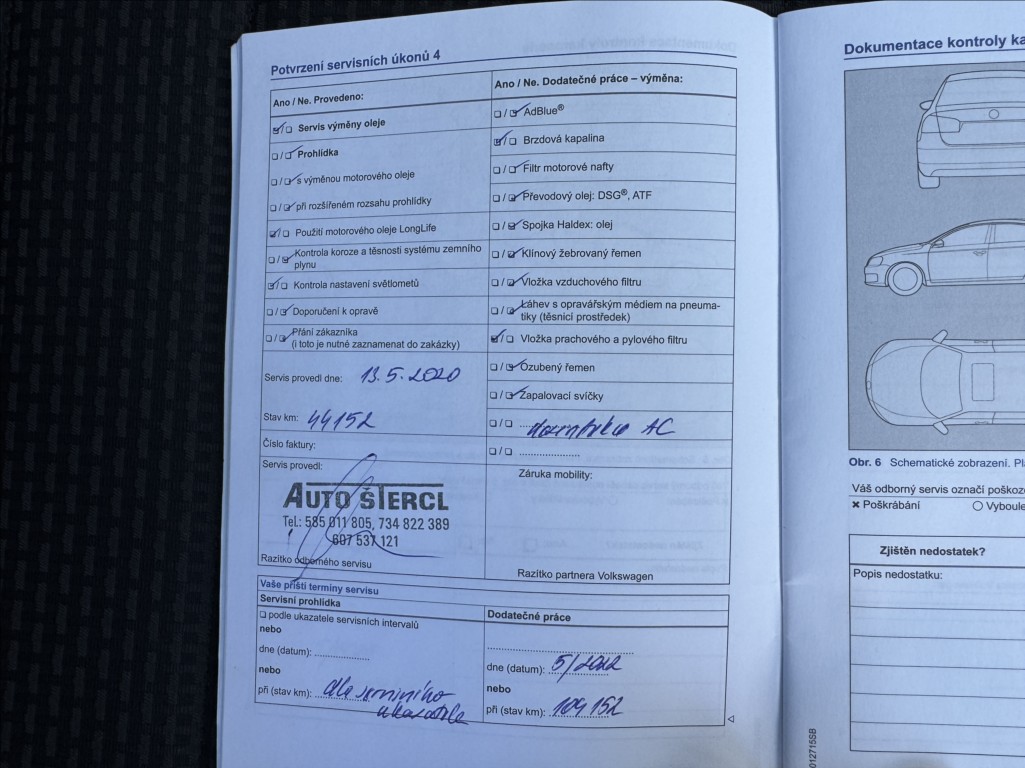 Potvrzení servisních úkonů 4
Ano / Ne. Provedeno:
Servis výměny oleje
Prohlídka
s výměnou motorového oleje
při rozšířeném rozsahu prohlídky
Použití motorového oleje LongLife
Kontrola koroze a těsnosti systému zemního
plynu
Kontrola nastavení světlometů
Doporučení k opravě
Přání zákazníka
(i toto je nutné zaznamenat do zakázky)
Servis provedl dne: 13.5.2020
Stav km: 44152
Číslo faktury:
Servis provedl:
AUTO ŠTERCL
Tel.: 585 011 805, 734 822 389
607 537 121
Razítko odborného servisu
Ano / Ne. Dodatečné práce – výměna:
AdBlue®
Brzdová kapalina
Filtr motorové nafty
Převodový olej: DSG®, ATF
Spojka Haldex: olej
Klínový žebrovaný řemen
Vložka vzduchového filtru
Láhev s opravářským médiem na pneuma-
tiky (těsnicí prostředek)
Vložka prachového a pylového filtru
Ozubený řemen
Zapalovací svíčky
AC
Záruka mobility:
Razítko partnera Volkswagen
Vaše příští termíny servisu
Servisní prohlídka
podle ukazatele servisních intervalů
nebo
dne (datum):
nebo
při (stav km): dle servisního
ukazatele
Dodatečné práce
dne (datum): 5/2022
nebo
při (stav km): 104 152
Dokumentace kontroly ka
Obr. 6 Schematické zobrazení. Pl
Váš odborný servis označí poškoz
Poškrábání Vyboule
Zjištěn nedostatek?
Popis nedostatku:
012715SB